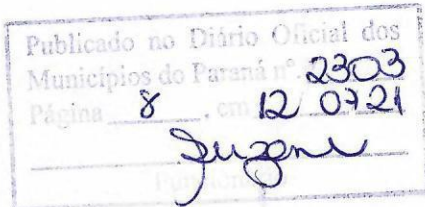 Publicado no Diário Oficial dos
Municípios do Paraná nº 2303
Página 8, em 12 07 21
Suzane
Funcionário